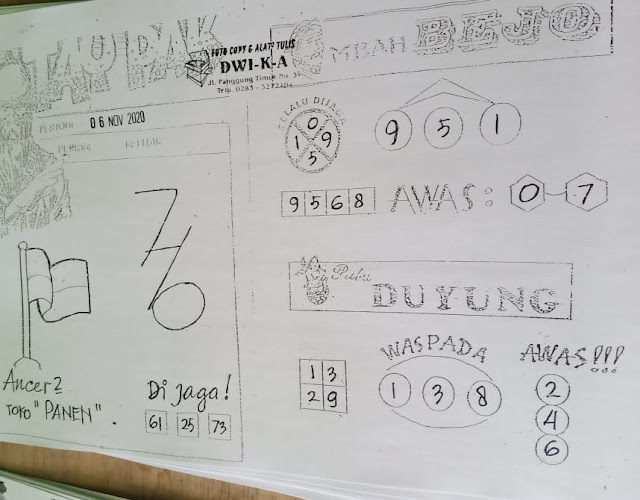 MBAH BEJO
FOTO COPY & ALAT² TULIS
DWI-K-A
Jl. Panggung Timur No.
Telp. 0283 -
PERIODE 06 NOV 2020
7
6
Ancer2
TOKO "PANEN".
Di jaga!
61 25 73
SELALU DIJAGA
0
1 9
5
9 5 1
9 5 6 8
AWAS: 0-7
Putri
DUYUNG
1 3
2 9
WASPADA
1 3 8
AWAS!!!
2
4
6